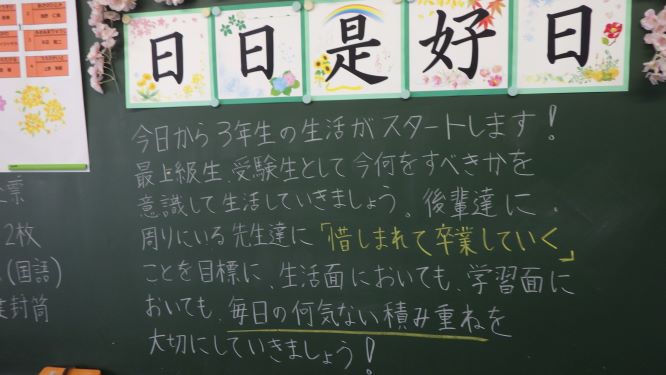 日日是好日
今日から3年生の生活がスタートします!
最上級生、受験生として今何をすべきかを
意識して生活していきましょう。後輩達に、
周りにいる先生達に「惜しまれて卒業していく」
ことを目標に、生活面においても、学習面に
おいても、毎日の何気ない積み重ねを
大切にしていきましょう!
票
2枚
(国語)
封筒